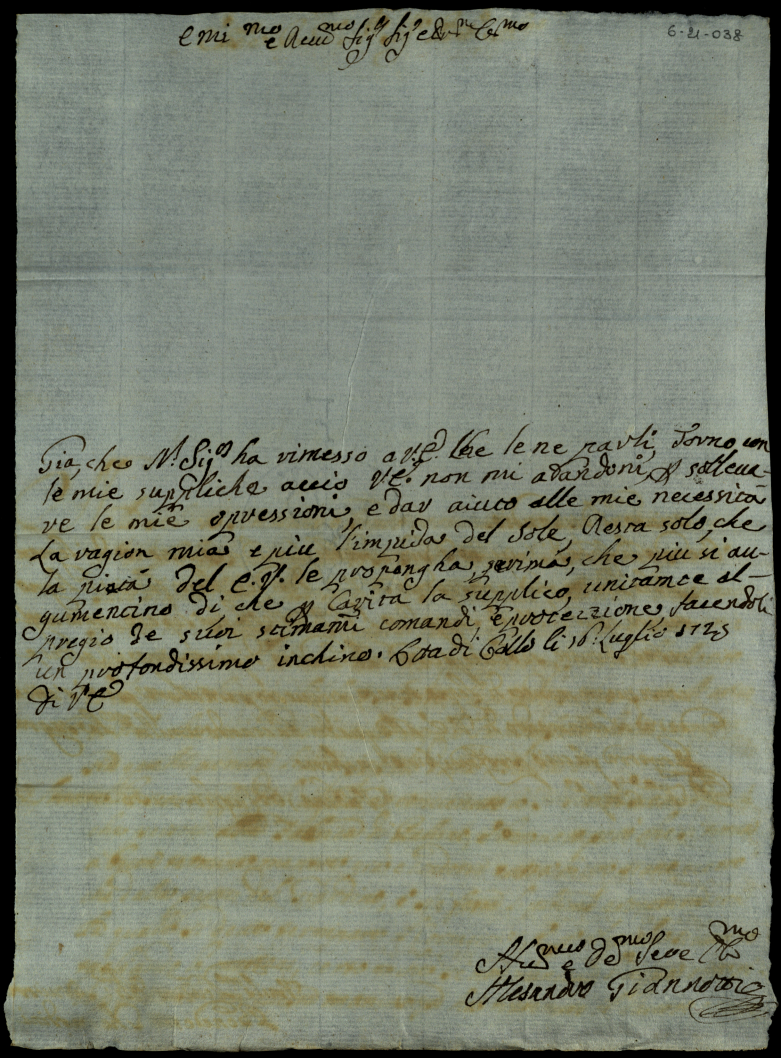 6-21-038
Emi mo e Reu mo Sig.r Sig.e
Già, che N. Sig.re ha rimesso a V.E. che le ne parli, Torno con
le mie suppliche acciò V.E. non mi abandoni, p solleua-
re le mie opressioni, e dar aiuto alle mie necessità
La ragion mia e piu limpida del Sole, Resta solo, che
la pietà del E.V. le propongha, che piu si au-
gumentino di che p Carità la supplico, unitamte al-
pregio de suoi stimami comandi, e protezzione, facendoli
un profondissimo inchino. di Collo li 16 Luglio 1725
di V.E.
Hu mo e De mo Serre
Alesandro Giannotti